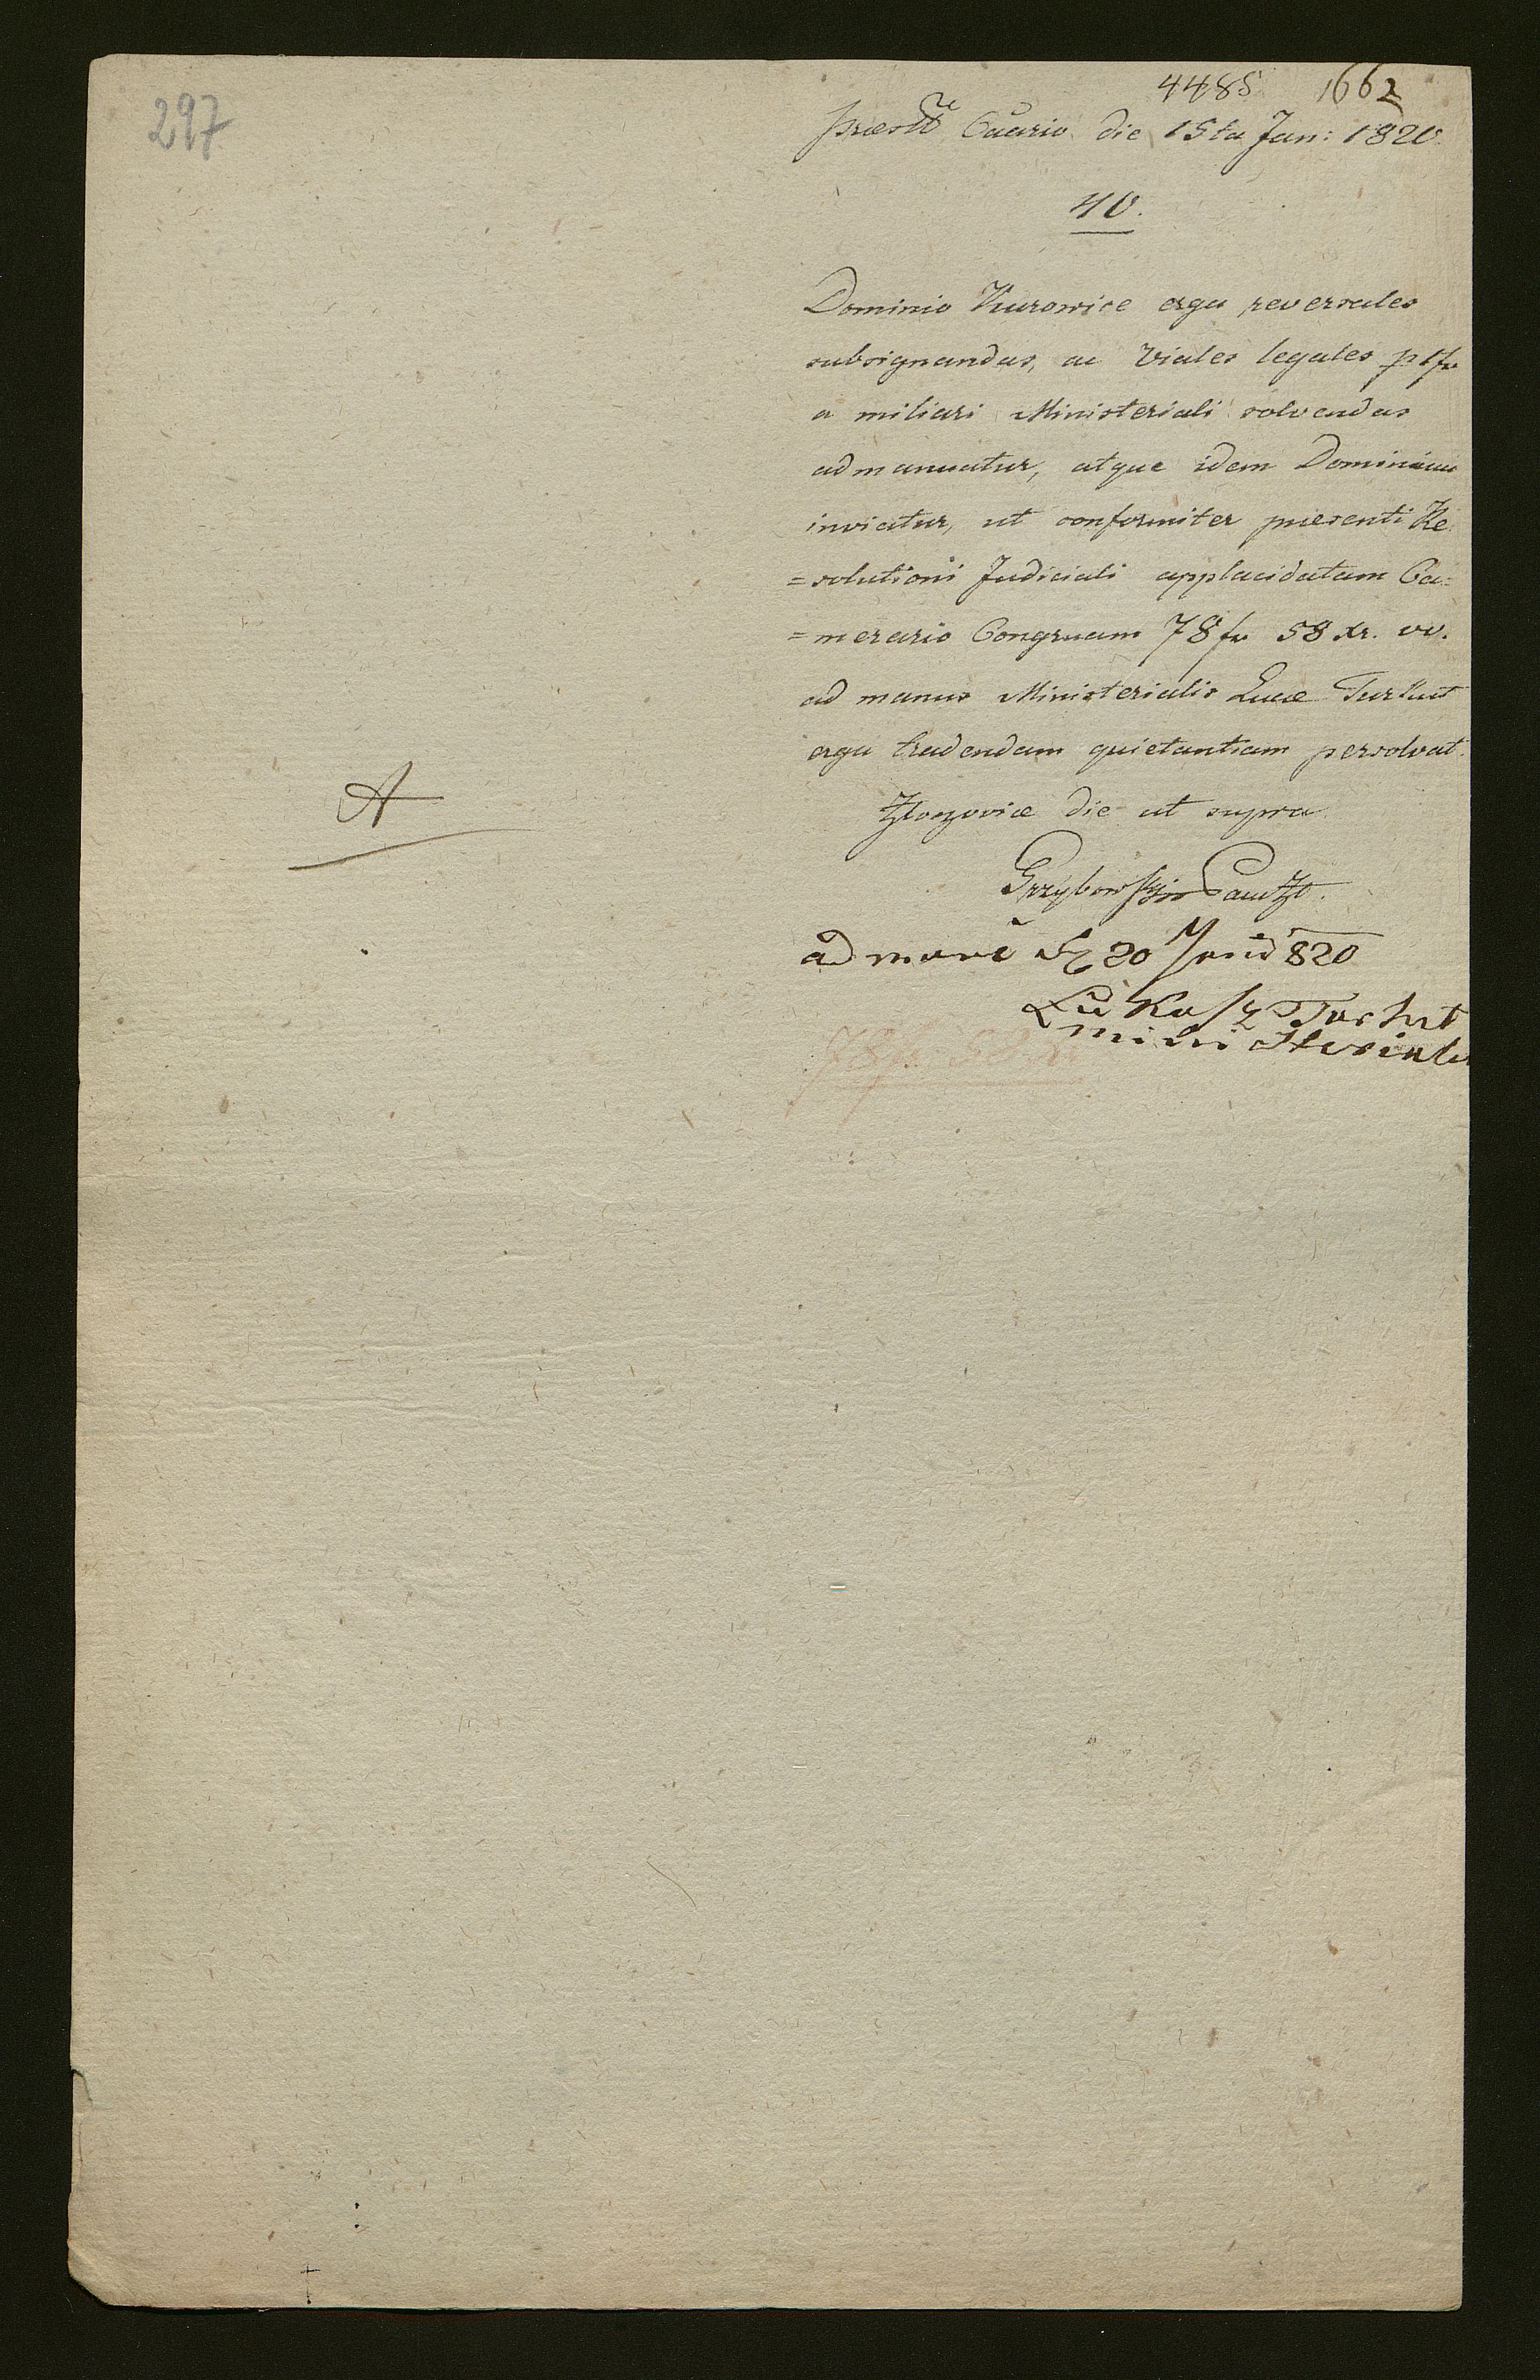 297
4485 1662
die 15ta Jan: 1820.
40.
Dominio Kurowice erga reversales
subsignandas, ac Viales legales p 1 fr
a miliari Ministeriali solvendas
admanuatur, atque idem Dominium
inviatur, ut conformiter praesenti Re
=solutioni Judiciali applacidatam Ca=
=merario Congruam 78 fr 58 xr. vv.
ad manus Ministerialis Lucae Turkut
erga tradendam quietantiam persolvat.
Zloczoviae die ut supra
Grzybowski
A
20 820
Lukasz Turkut
ministerialis